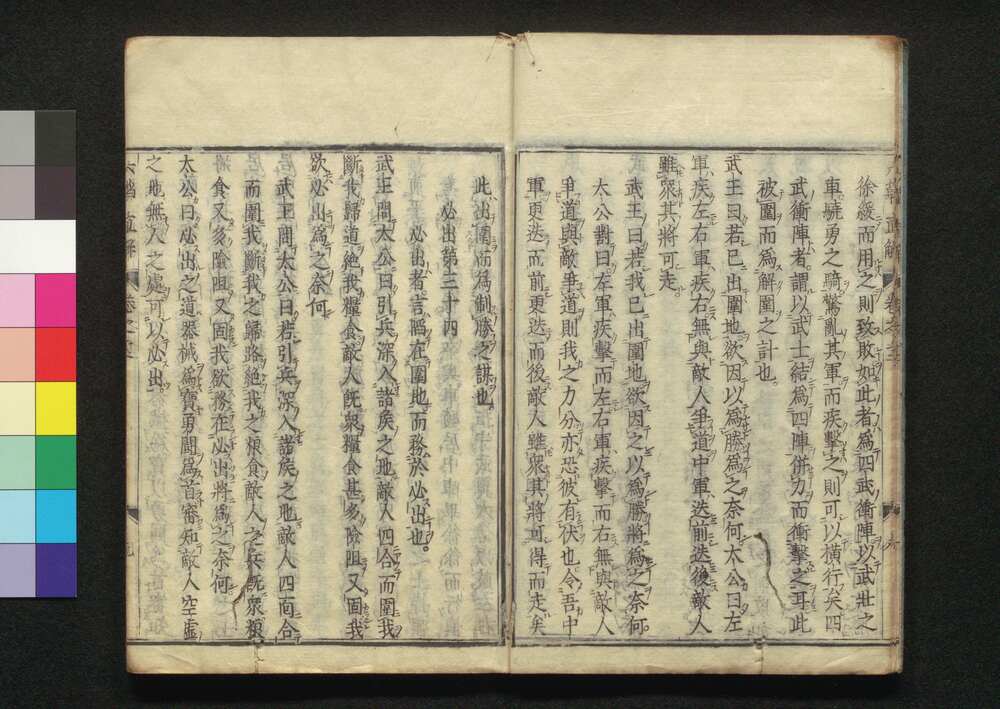 徐緩而用之則致敗如此者爲四武衝陣以武壯之
車驍勇之騎驚亂其軍而疾擊之則可以橫行矣四
武衝陣者謂以武士結爲四陣併力而衝擊之耳此
被圍而爲解圍之計也
武王曰若已出圍地欲因以爲勝爲之奈何太公曰左
軍疾左右軍疾右無與敵人爭道中軍迭前迭後敵人
雖衆其將可走
武王曰若我已出圍地欲因之以爲勝將爲之奈何
太公對曰左軍疾擊而左右軍疾擊而右無與敵人
爭道與敵爭道則我之力分亦恐彼有伏也令吾中
軍更迭而前更迭而後敵人雖衆其將可得而走矣
此出圍而爲制勝之謀也
必出第三十四
必出者言陷在圍地而務於必出也
武王問太公曰引兵深入諸侯之地敵人四合而圍我
斷我歸道絶我糧食敵人既衆糧食甚多險阻又固我
欲必出爲之奈何
武王問太公曰若引兵深入諸侯之地敵人四面合
而圍我斷我之歸路絶我之糧食敵人之兵既衆糧
食又多險阻又固我欲務在必出將爲之奈何
太公曰必出之道器械爲寶勇鬪爲首審知敵人空虛
之地無人之處可以必出
六韜直解 卷之